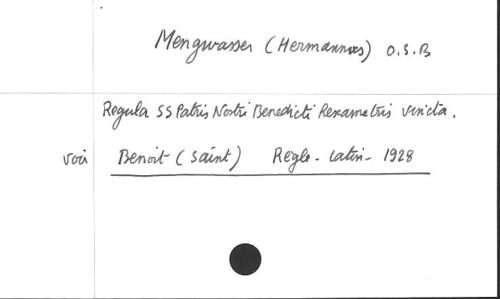 Mengwasser (Hermannus) O.S.B
Regula SS Patris Nostri Benedicti Hexametris vincta.
voir Benoît (Saint) Règle - Latin - 1928